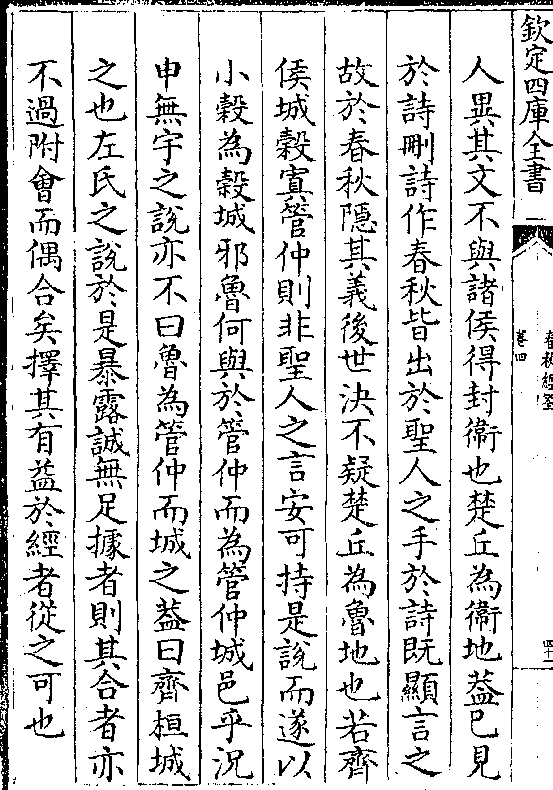 欽定四庫全書
卷四
人異其文不與諸侯得封衛也楚丘為衛地葢已見
於詩刪詩作春秋皆出於聖人之手於詩既顯言之
故於春秋隱其義後世決不疑楚丘為魯地也若齊
侯城糓寘管仲則非聖人之言安可持是說而遂以
小糓為糓城邪魯何與於管仲而為管仲城邑乎況
申無宇之說亦不曰魯為管仲而城之葢曰齊桓城
之也左氏之說於是暴露誠無足據者則其合者亦
不過附會而偶合矣擇其有益於經者從之可也